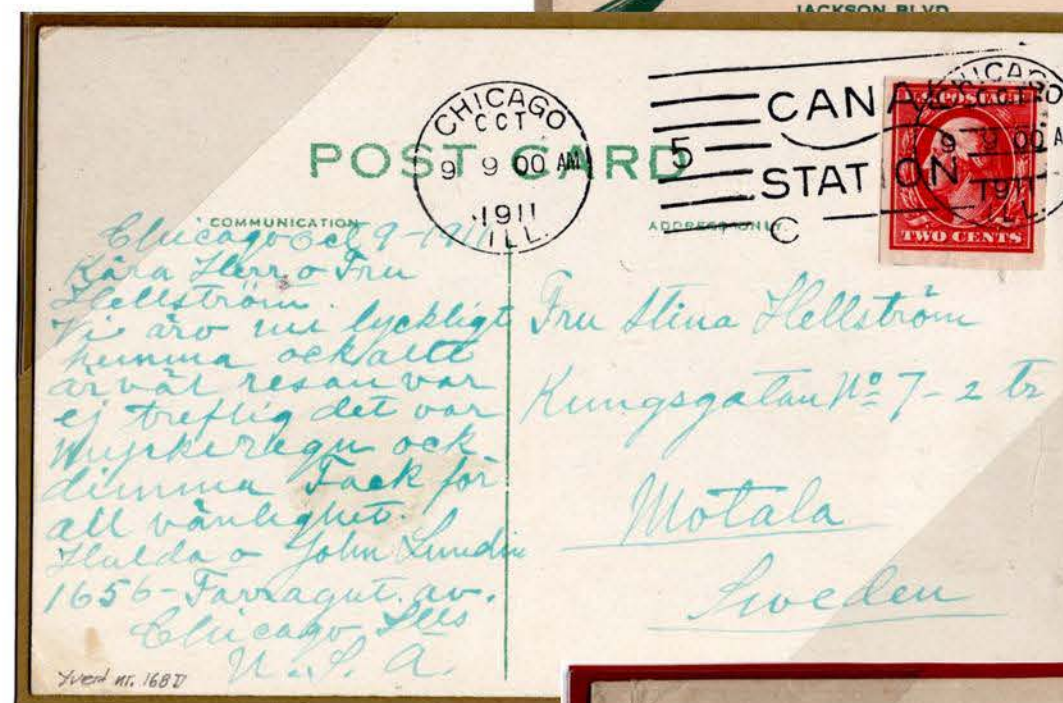 JACKSON BLVD
POST CARD
COMMUNICATION
ADDRESS ONLY.
CHICAGO
OCT
9 9 00 AM
1911
ILL.
5
CANAL
STATION
C
CHICAGO
OCT
9 9 00 A
1911
ILL.
TWO CENTS
Chicago Oct 9-1911
Kära Herr o Fru
Hellström.
Vi äro nu lyckligt
hemma ock allt
är väl resan var
ej treflig det var
mycke regn ock
dimma Tack för
all vänlighet.
Hulda o John Lundin
1656-Farragut. av.
Chicago Ills
U.S.A.
Fru Stina Hellström
Kungsgatan Nº 7-2 tr
Motala
Sweden
Yvert nr. 168 D